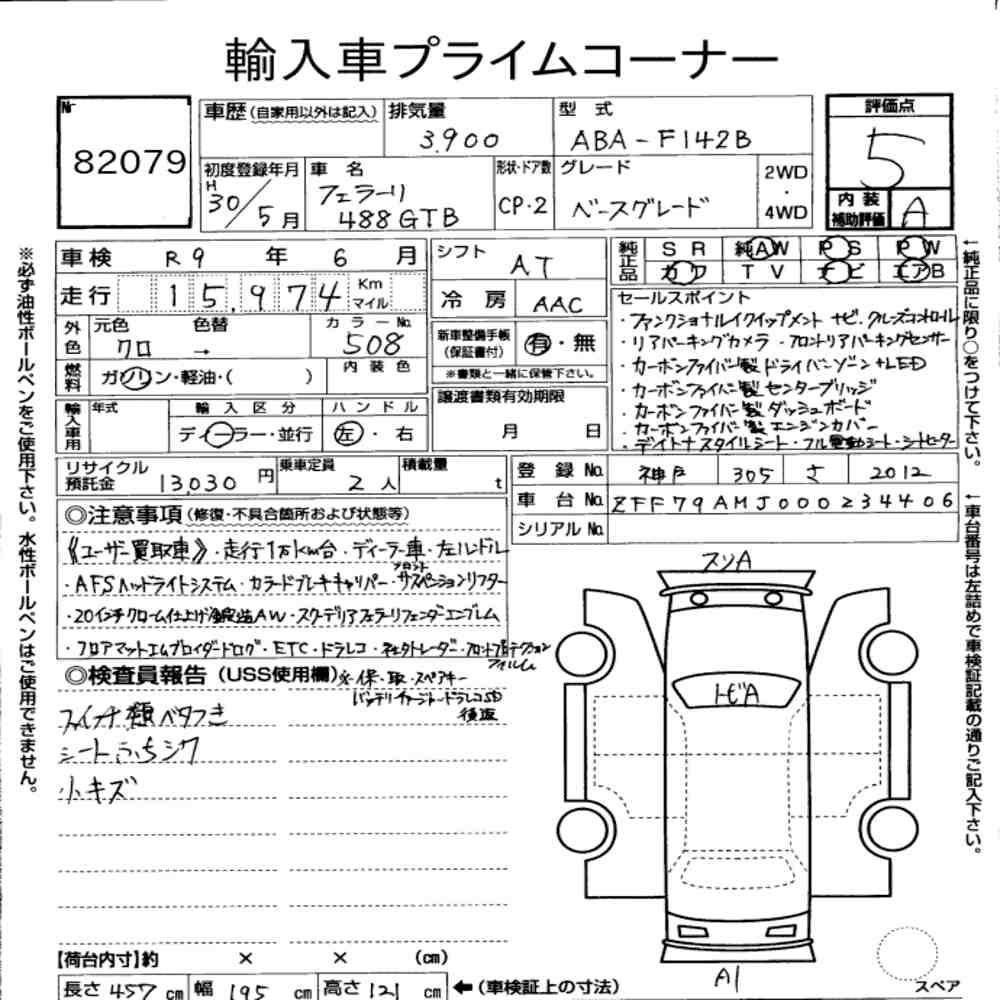 輸入車プライムコーナー
Nr 82079
車歴(自家用以外は記入) 排気量 3,900 型式 ABA-F142B
評価点 5
内装補助評価 A
初度登録年月 H30/5月 車名 フェラーリ 488GTB 形状・ドア数 CP・2 グレード ベースグレード 2WD・4WD
車検 R9年6月
走行 15,974 Km マイル
シフト AT
冷房 AAC
純正品 SR 純AW PS PW
カワ TV ナビ エアB
外色 元色 クロ 色替 → カラーNo. 508
燃料 ガソリン・軽油・( ) 内装色
新車整備手帳(保証書付) 有・無
※書類と一緒に保管下さい。
輸入車用 年式 輸入区分 ディーラー・並行 ハンドル 左・右
譲渡書類有効期限 月 日
セールスポイント
・ファンクショナルイクイップメント ナビ.クルーズコントロール
・リアパーキングカメラ・フロントリアパーキングセンサー
・カーボンファイバー製ドライバーゾーン+LED
・カーボンファイバー製センターブリッジ
・カーボンファイバー製ダッシュボード
・カーボンファイバー製エンジンカバー
・デイトナスタイルシート・フル電動シート・シートヒーター
リサイクル預託金 13,030円 乗車定員 2人 積載量 t
登録No. 神戸 305 さ 2012
車台No. ZFF79AMJ000234406
シリアルNo.
◎注意事項(修復・不具合箇所および状態等)
《ユーザー買取車》・走行1万km台・ディーラー車・左ハンドル
・AFSヘッドライトシステム・カラードブレーキキャリパー・フロントサスペションリフター
・20インチクローム仕上げ鍛造AW・スクーデリアフェラーリフェンダーエンブレム
・フロアマットエムブロイダードログ・ETC・ドラレコ・ネクストレーダー・フロントプロテクションフィルム
◎検査員報告(USS使用欄)
※保・取・スペアキー
バッテリーチャージャー・ドラレコSD
後送
スイッチ類ベタつき
シートふちシワ
小キズ
スソA
トビA
A1
スペア
【荷台内寸】約 × × (cm)
長さ 457 cm 幅 195 cm 高さ 121 cm ←(車検証上の寸法)
※必ず油性ボールペンをご使用下さい。水性ボールペンはご使用できません。
←純正品に限り○をつけて下さい。
←車台番号は左詰めで車検証記載の通りご記入下さい。